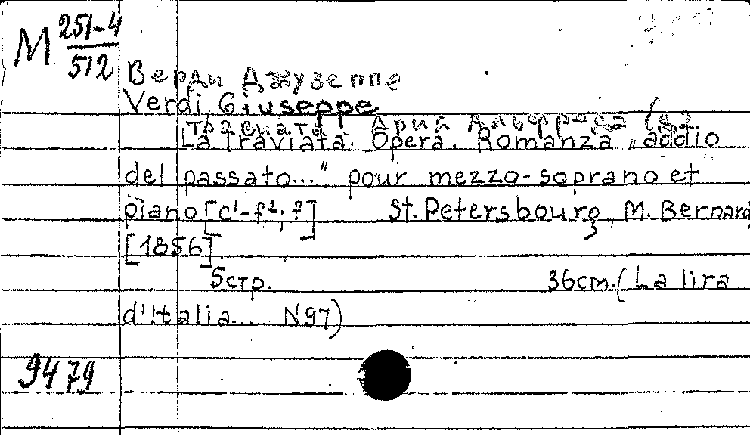 M 251-4
512
Верди Джузеппе
Verdi, Giuseppe
Травиата. Ария
La Traviata. Opera. Romanza „addio
del passato..." pour mezzo-soprano et
piano [c¹-f²; f] St. Petersbourg, M. Bernard
[1856]
5 стр. 36 cm. (La lira
d'Italia... N97)
9479